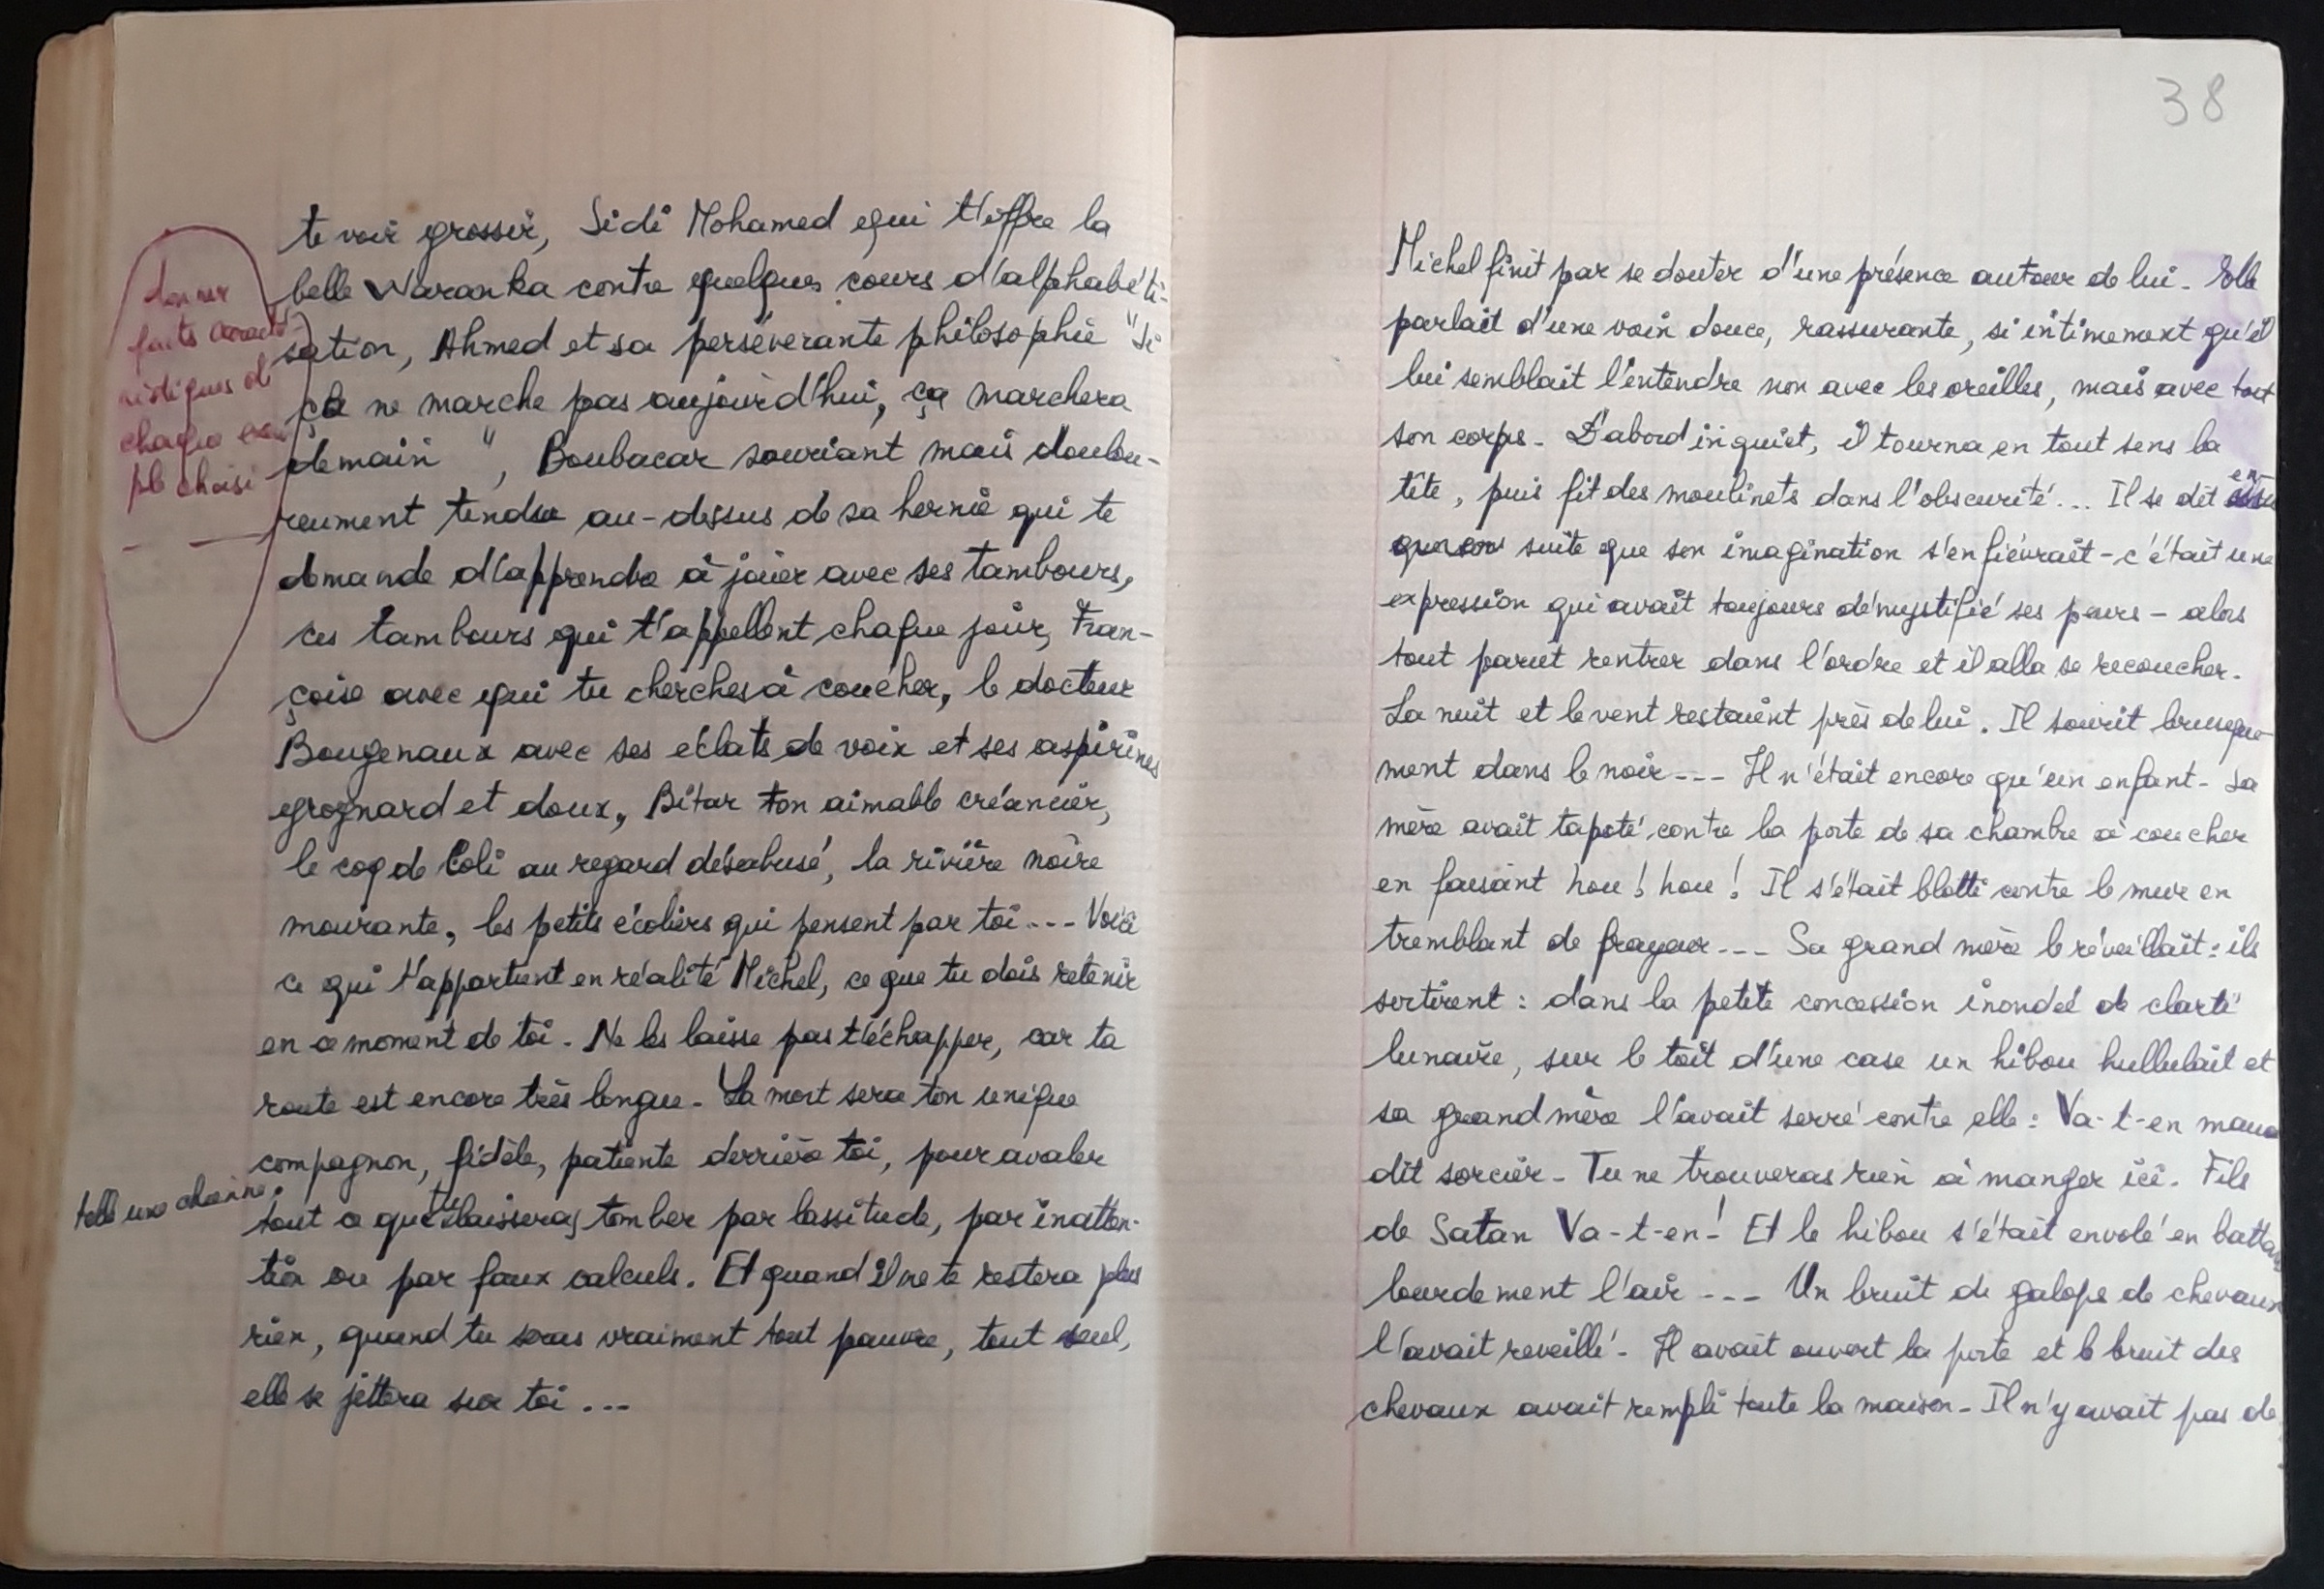 te voir grossir, Sidi Mohamed qui t'offre la
belle Waranka contre quelques cours d'alphabéti-
sation, Ahmed et sa persévérante philosophie "Si
ça ne marche pas aujourd'hui, ça marchera
demain", Boubacar souriant mais doulou-
reument tendu au-dessus de sa hernie qui te
demande d'apprendre à jouer avec ses tambours,
ces tambours qui t'appellent chaque jour, Fran-
çoise avec qui tu cherches à coucher, le docteur
Bougenaux avec ses éclats de voix et ses aspirines
grognard et doux, Bitar ton aimable créancier,
le coq de Coli au regard désabusé, la rivière noire
mourante, les petits écoliers qui pensent par toi --- Voici
ce qui t'appartient en réalité Michel, ce que tu dois retenir
en ce moment de toi. Ne les laisse pas t'échapper, car ta
route est encore très longue. La mort sera ton unique
compagnon, fidèle, patiente derrière toi, pour avaler
telle une chienne
tout ce que tu laisseras tomber par lassitude, par inatten-
tion ou par faux calculs. Et quand il ne te restera plus
rien, quand tu seras vraiment tout pauvre, tout seul,
elle se jettera sur toi ...
donner
faits caracté-
ristiques de
chaque exem
ple choisi
38
Michel finit par se douter d'une présence autour de lui. Elle
parlait d'une voix douce, rassurante, si intimement qu'il
lui semblait l'entendre non avec les oreilles, mais avec tout
son corps. D'abord inquiet, il tourna en tout sens la
tête, puis fit des moulinets dans l'obscurité... Il se dit en
suite que son imagination s'enfiévrait - c'était une
expression qui avait toujours démystifié ses peurs - alors
tout parut rentrer dans l'ordre et il alla se recoucher.
La nuit et le vent restaient près de lui. Il sourit brusque-
ment dans le noir --- Il n'était encore qu'un enfant. Sa
mère avait tapoté contre la porte de sa chambre à coucher
en faisant hou! hou! Il s'était blotti contre le mur en
tremblant de frayeur --- Sa grand mère le réveillait : ils
sortirent : dans la petite concession inondée de clarté
lunaire, sur le toit d'une case un hibou hullulait et
sa grand mère l'avait serré contre elle : Va-t-en mau
dit sorcier. Tu ne trouveras rien à manger ici. Fils
de Satan Va-t-en! Et le hibou s'était envolé en battant
lourdement l'air --- Un bruit de galops de chevaux
l'avait reveillé. Il avait ouvert la porte et le bruit des
chevaux avait rempli toute la maison. Il n'y avait pas de